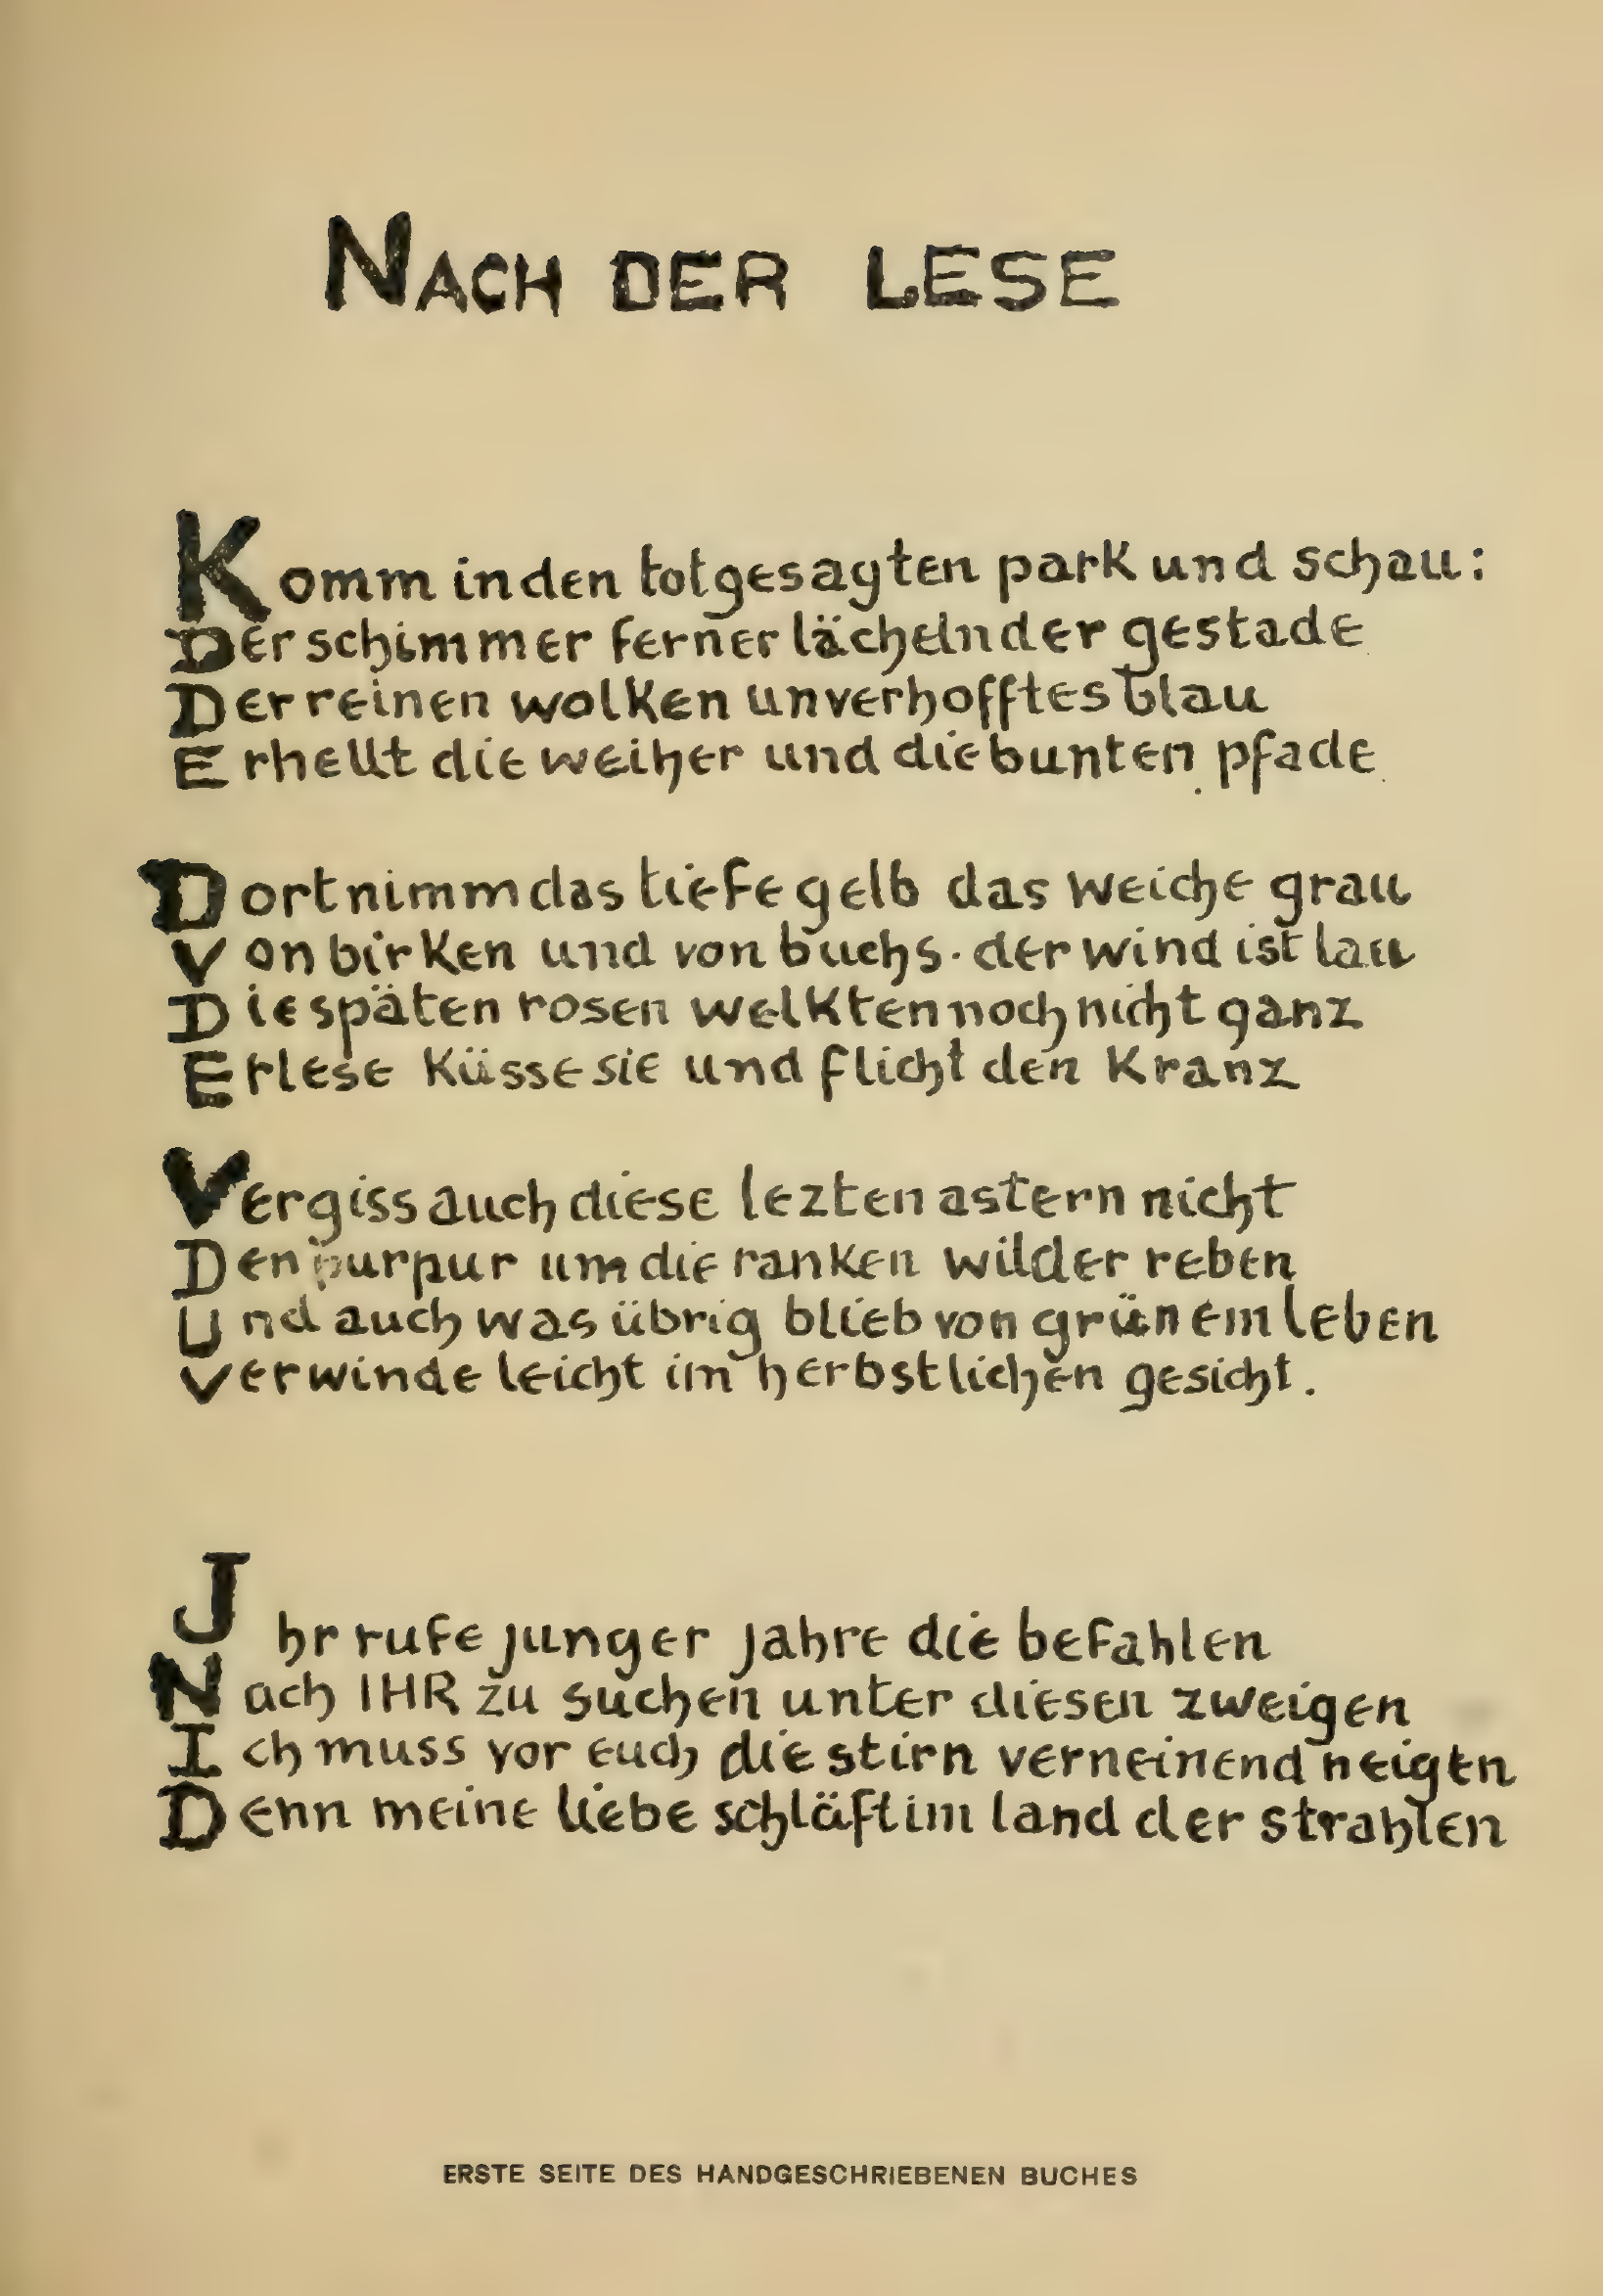 NACH DER LESE
Komm in den totgesagten park und schau:
Der schimmer ferner lächelnder gestade
Der reinen wolken unverhofftes blau
Erhellt die weiher und die bunten pfade.
Dort nimm das tiefe gelb das weiche grau
Von birken und von buchs· der wind ist lau
Die späten rosen welkten noch nicht ganz
Erlese küsse sie und flicht den kranz
Vergiss auch diese lezten astern nicht
Den purpur um die ranken wilder reben
Und auch was übrig blieb von grünem leben
Verwinde leicht im herbstlichen gesicht.
Ihr rufe junger jahre die befahlen
Nach IHR zu suchen unter diesen zweigen
Ich muss vor euch die stirn verneinend neigen
Denn meine liebe schläft im land der strahlen
ERSTE SEITE DES HANDGESCHRIEBENEN BUCHES